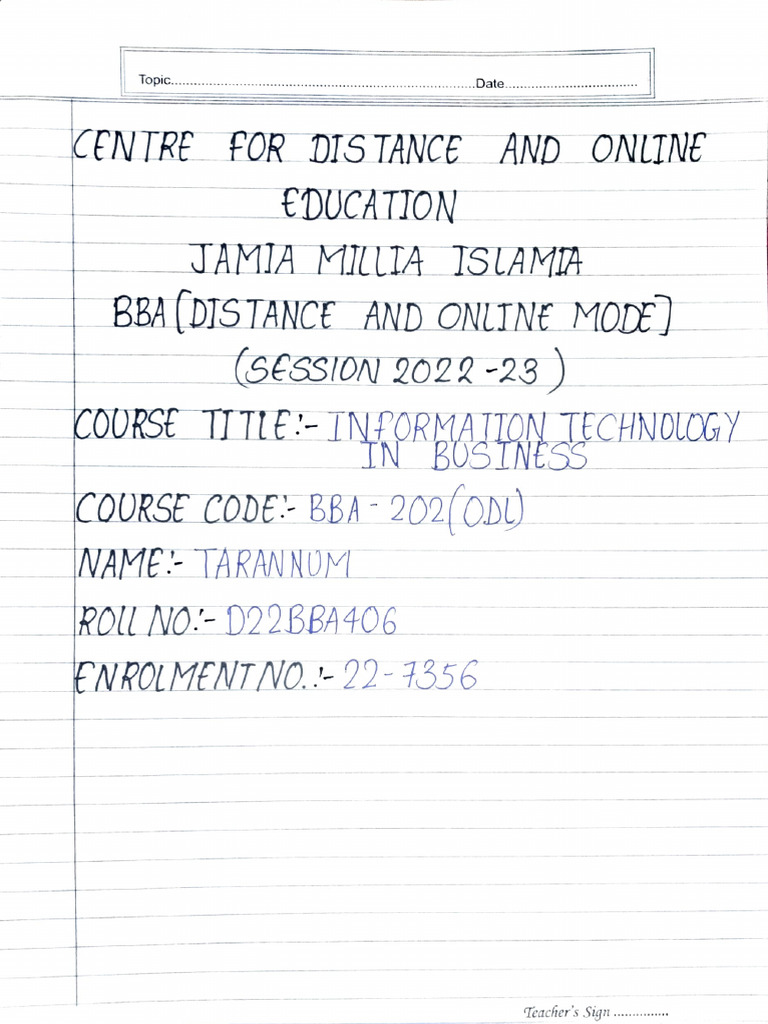 Topic................................................................................Date...................................
CENTRE FOR DISTANCE AND ONLINE
EDUCATION
JAMIA MILLIA ISLAMIA
BBA [DISTANCE AND ONLINE MODE]
(SESSION 2022-23)
COURSE TITLE:- INFORMATION TECHNOLOGY
IN BUSINESS
COURSE CODE:- BBA - 202(ODL)
NAME:- TARANNUM
ROLL NO:- D22BBA406
ENROLMENT NO.:- 22-7356
Teacher's Sign ...............